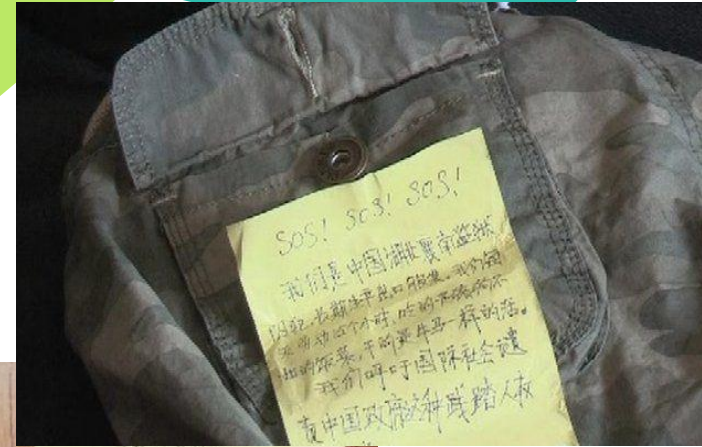 SOS! SOS! SOS!
我们是中国湖北襄南监狱
囚犯,长期生产出口服装,我们每
天劳动15个小时,吃的是猪狗不
如的饭菜,干的是牛马一样的活。
我们呼吁国际社会谴
责中国政府这种践踏人权